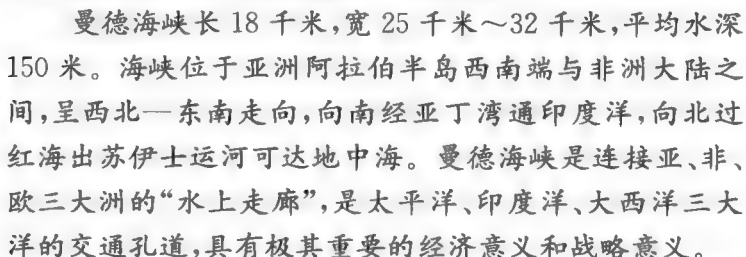 曼德海峡长 18 千米,宽 25 千米～32 千米,平均水深
150 米。海峡位于亚洲阿拉伯半岛西南端与非洲大陆之
间,呈西北—东南走向,向南经亚丁湾通印度洋,向北过
红海出苏伊士运河可达地中海。曼德海峡是连接亚、非、
欧三大洲的“水上走廊”,是太平洋、印度洋、大西洋三大
洋的交通孔道,具有极其重要的经济意义和战略意义。